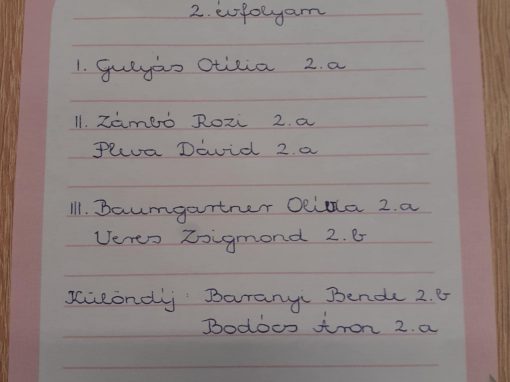 2. évfolyam
I. Gulyás Otília 2.a
II. Zámbó Rozi 2.a
Pleva Dávid 2.a
III. Baumgartner Olívia 2.a
Veres Zsigmond 2.b
Különdíj: Baranyi Bende 2.b
Bodócs Áron 2.a